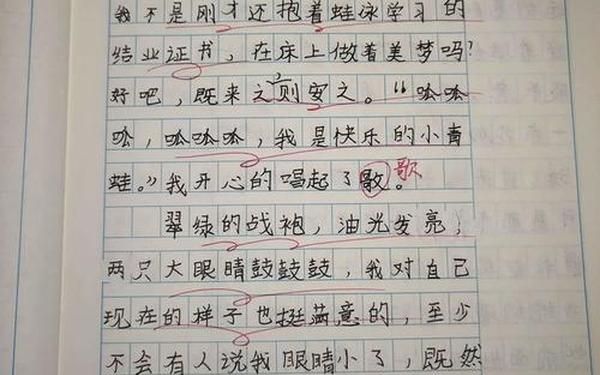 我不是刚才还抱着蛙泳学习的
结业证书，在床上做着美梦吗？
好吧，既来之则安之。“呱呱
呱，呱呱呱，我是快乐的小青
蛙。”我开心的唱起了歌。歌
翠绿的战袍，油光发亮，
两只大眼睛鼓鼓鼓，我对自己
现在的样子也挺满意的，至少
不会有人说我眼睛小了，既然